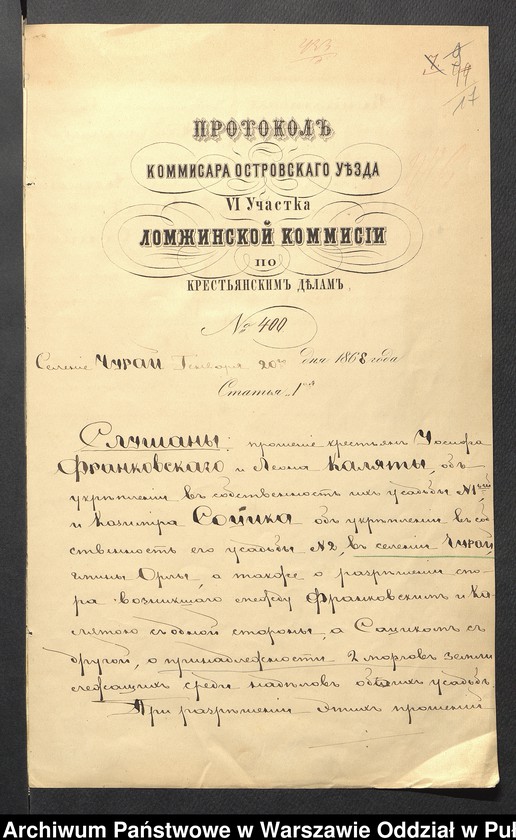 433
17
ПРОТОКОЛЪ
КОММИСАРА ОСТРОВСКАГО УѢЗДА
VI Участка
ЛОМЖИНСКОЙ КОММИСІИ
ПО
КРЕСТЬЯНСКИМЪ ДѢЛАМЪ.
№ 400
Селеніе Чурай Генваря 20го дня 1868 года
Статья 1ая
Слушаны: прошеніе крестьянъ Іосифа
Франковскаго и Леона Каляты, объ
укрѣпленіи въ собственность ихъ усадьбы №1ый
и Казиміра Сойка объ укрѣпленіи въ со
ственность его усадьбы №2, въ селеніи Чурай,
гмины Орлы, а также о разрѣшеніи спо-
ра возникшаго между Франковскимъ и Ка-
лятою съ одной стороны, а Сойкомъ съ
другой, о принадлежности 2 морговъ земли
лежащихъ среди надѣловъ обѣихъ усадьбъ
При разрѣшеніи этихъ прошеній
Archiwum Państwowe w Warszawie Oddział w Puł